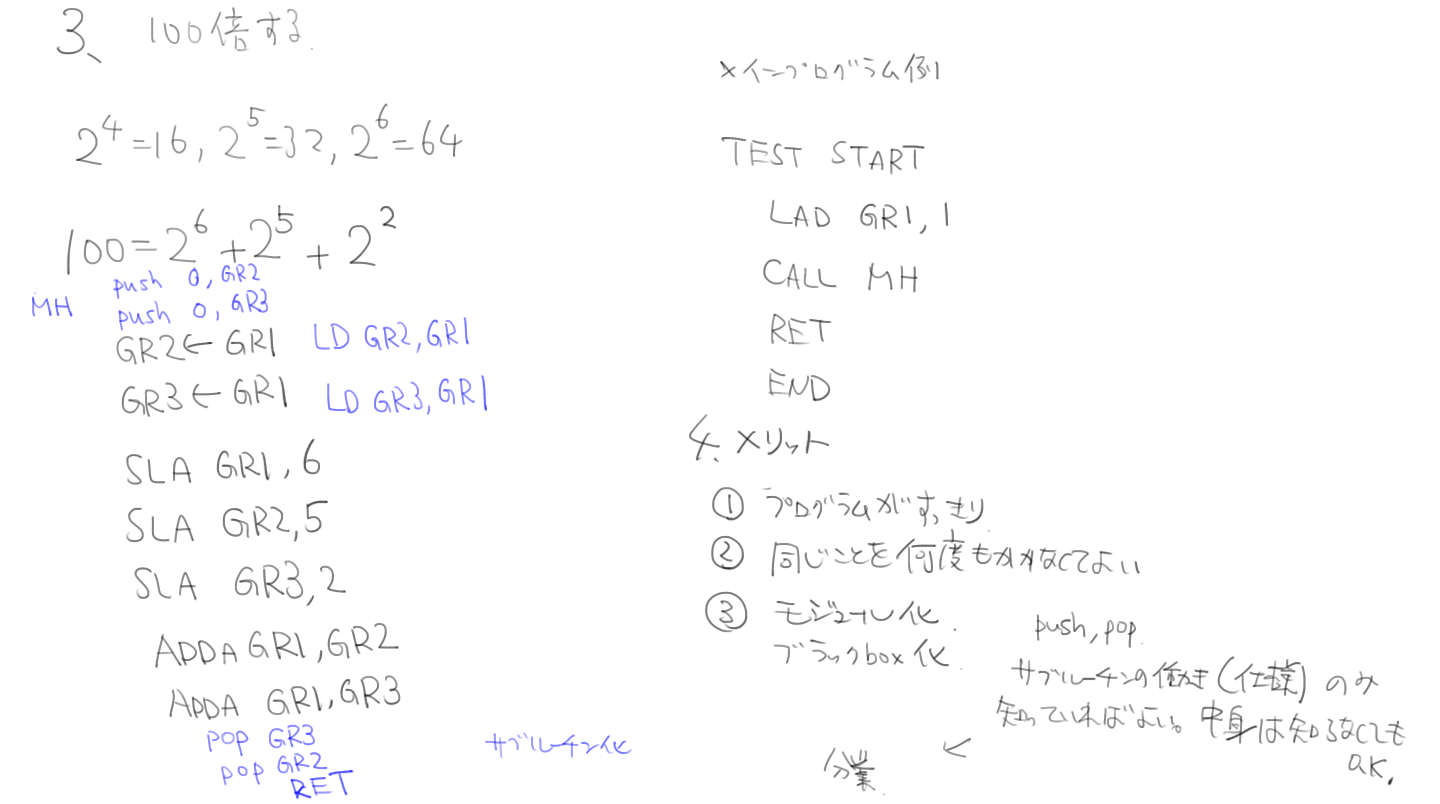 3、 100倍する.
2^4=16, 2^5=32, 2^6=64
100=2^6+2^5+2^2
push 0, GR2
MH push 0, GR3
GR2← GR1 LD GR2,GR1
GR3← GR1 LD GR3,GR1
SLA GR1,6
SLA GR2,5
SLA GR3,2
ADDA GR1,GR2
ADDA GR1,GR3
pop GR3
pop GR2
RET
サブルーチン化
メインプログラム例
TEST START
LAD GR1,1
CALL MH
RET
END
4. メリット
① プログラムがすっきり
② 同じことを何度もかかなくてよい
③ モジュール化.
ブラックbox化.
push, pop.
サブルーチンの働き(仕様)のみ
知っていればよい。中身は知らなくても
OK.
←
分業.